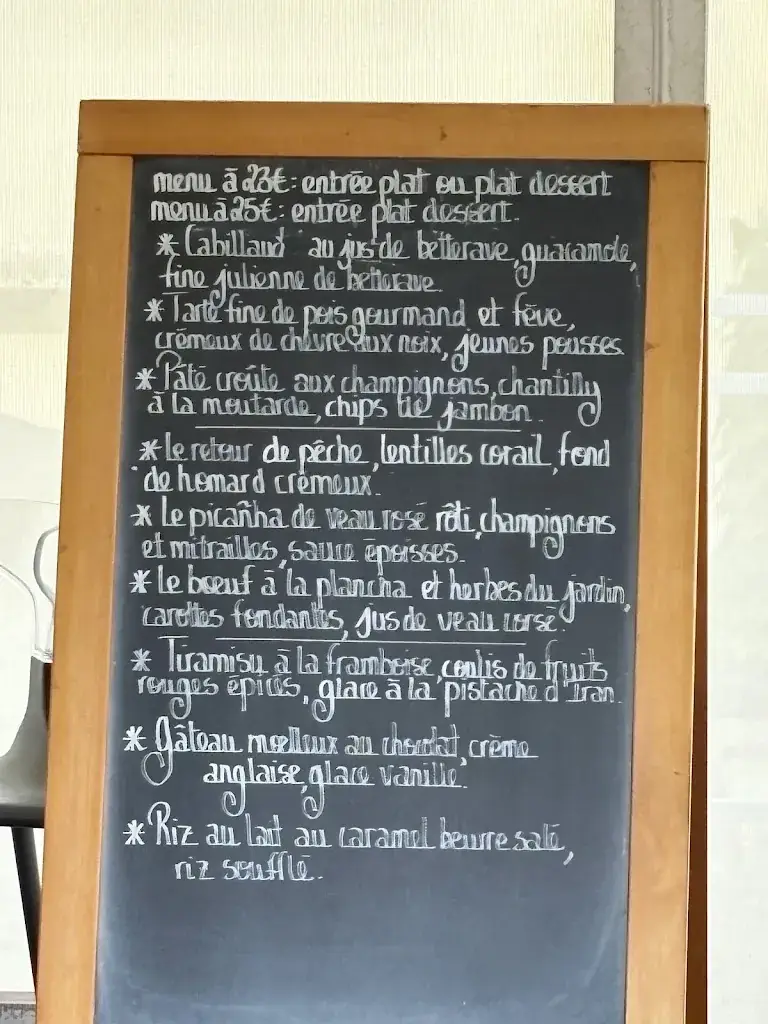 menu à 23€: entrée plat ou plat dessert
menu à 25€: entrée plat dessert.
* Cabillaud au jus de betterave, guacamole,
fine julienne de betterave.
* Tarte fine de pois gourmand et fève,
crémeux de chèvre aux noix, jeunes pousses.
* Pâté croûte aux champignons, chantilly
à la moutarde, chips de jambon.
* Le retour de pêche, lentilles corail, fond
de homard crémeux.
* Le picanha de veau rosé rôti, champignons
et mitrailles, sauce époisses.
* Le bœuf à la plancha et herbes du jardin,
carottes fondantes, jus de veau corsé.
* Tiramisu à la framboise, coulis de fruits
rouges épicés, glace à la pistache d'Iran.
* Gâteau moelleux au chocolat, crème
anglaise, glace vanille.
* Riz au lait au caramel beurre salé,
riz soufflé.